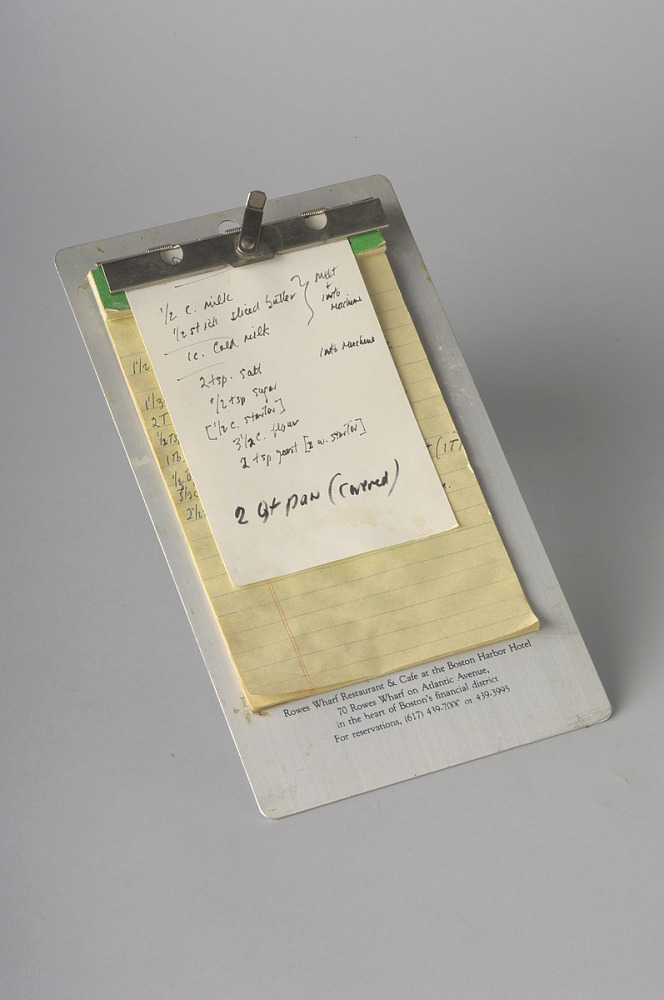 1/2 c. milk
1/2 stick sliced butter } melt
+
into
machine
1c. Cold milk
into Machine
2 tsp. salt
1/2 tsp sugar
[1/2 c. starter]
3 1/2 c. flour
2 tsp yeast [2 w. starter]
2 qt pan (covered)
1 1/2
1/3
2T
1/2 Ts
1 Tb
3 1/2 c
2 1/2
(1T)
Rowes Wharf Restaurant & Cafe at the Boston Harbor Hotel
70 Rowes Wharf on Atlantic Avenue,
in the heart of Boston's financial district
For reservations, (617) 439-7000 or 439-3995